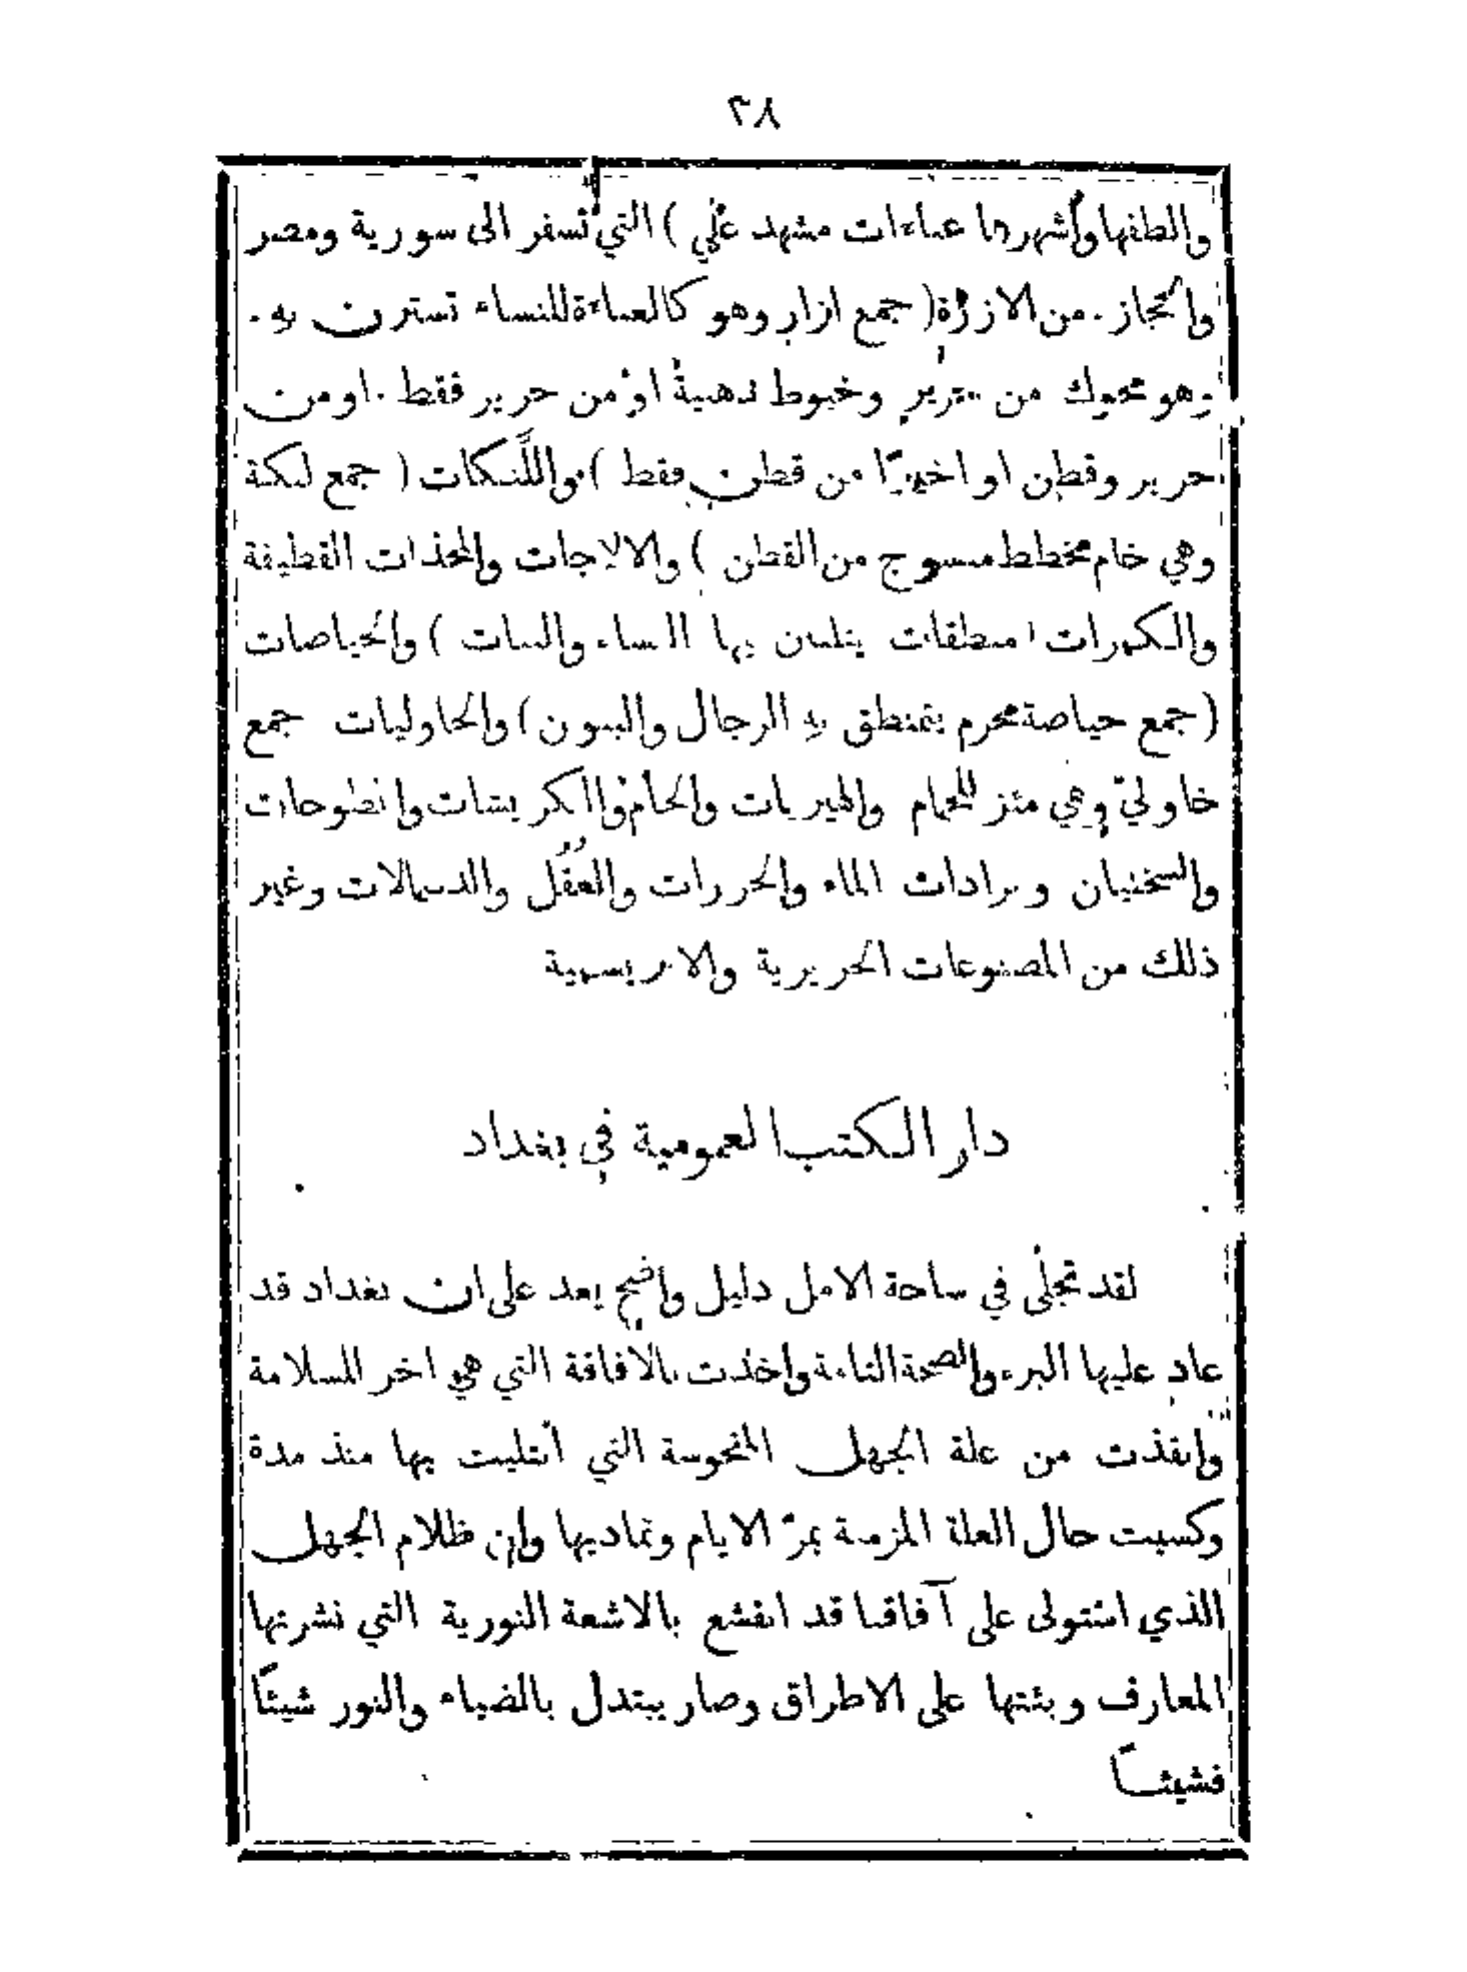 ٣٨
والطفها وأشهرها عباءات مشهد علي ) التي تسفر الى سورية ومصر
والحجاز . من الازرة ( جمع ازار وهو كالعباءة للنساء تسترن به .
وهو محوك من حرير وخيوط ذهبية او من حرير فقط . او من
حرير وقطن او اخيرًا من قطن فقط ) واللَّنكات ( جمع لنكة
وهي خام مخطط منسوج من القطن ) والالاجات والمخذات القطيفة
والكمرات ( منطقات يتلبس بها النساء والبنات ) والحياصات
( جمع حياصة محرم يتمنطق به الرجال والبنون ) والخاوليات جمع
خاولي وهي مئزر للحمام والهبريات والخام والكريشات وانطوحات
والسختيان وبرادات الماء والحررات والعُقُل والدسمالات وغير
ذلك من المصنوعات الحريرية والابريسمية
دار الكتب العمومية في بغداد
لقد تجلى في ساحة الامل دليل واضح يعد على ان بغداد قد
عاد عليها البرء والصحة التامة واخذت بالافاقة التي هي اخر السلامة
وانقذت من علة الجهل المنحوسة التي ابتليت بها منذ مدة
وكسبت حال العلة المزمنة بمرّ الايام وتماديها وان ظلام الجهل
الذي استولى على آفاقنا قد انقشع بالاشعة النورية التي نشرتها
المعارف وبثتها على الاطراق وصار يبتدل بالضياء والنور شيئًا
فشيئًا